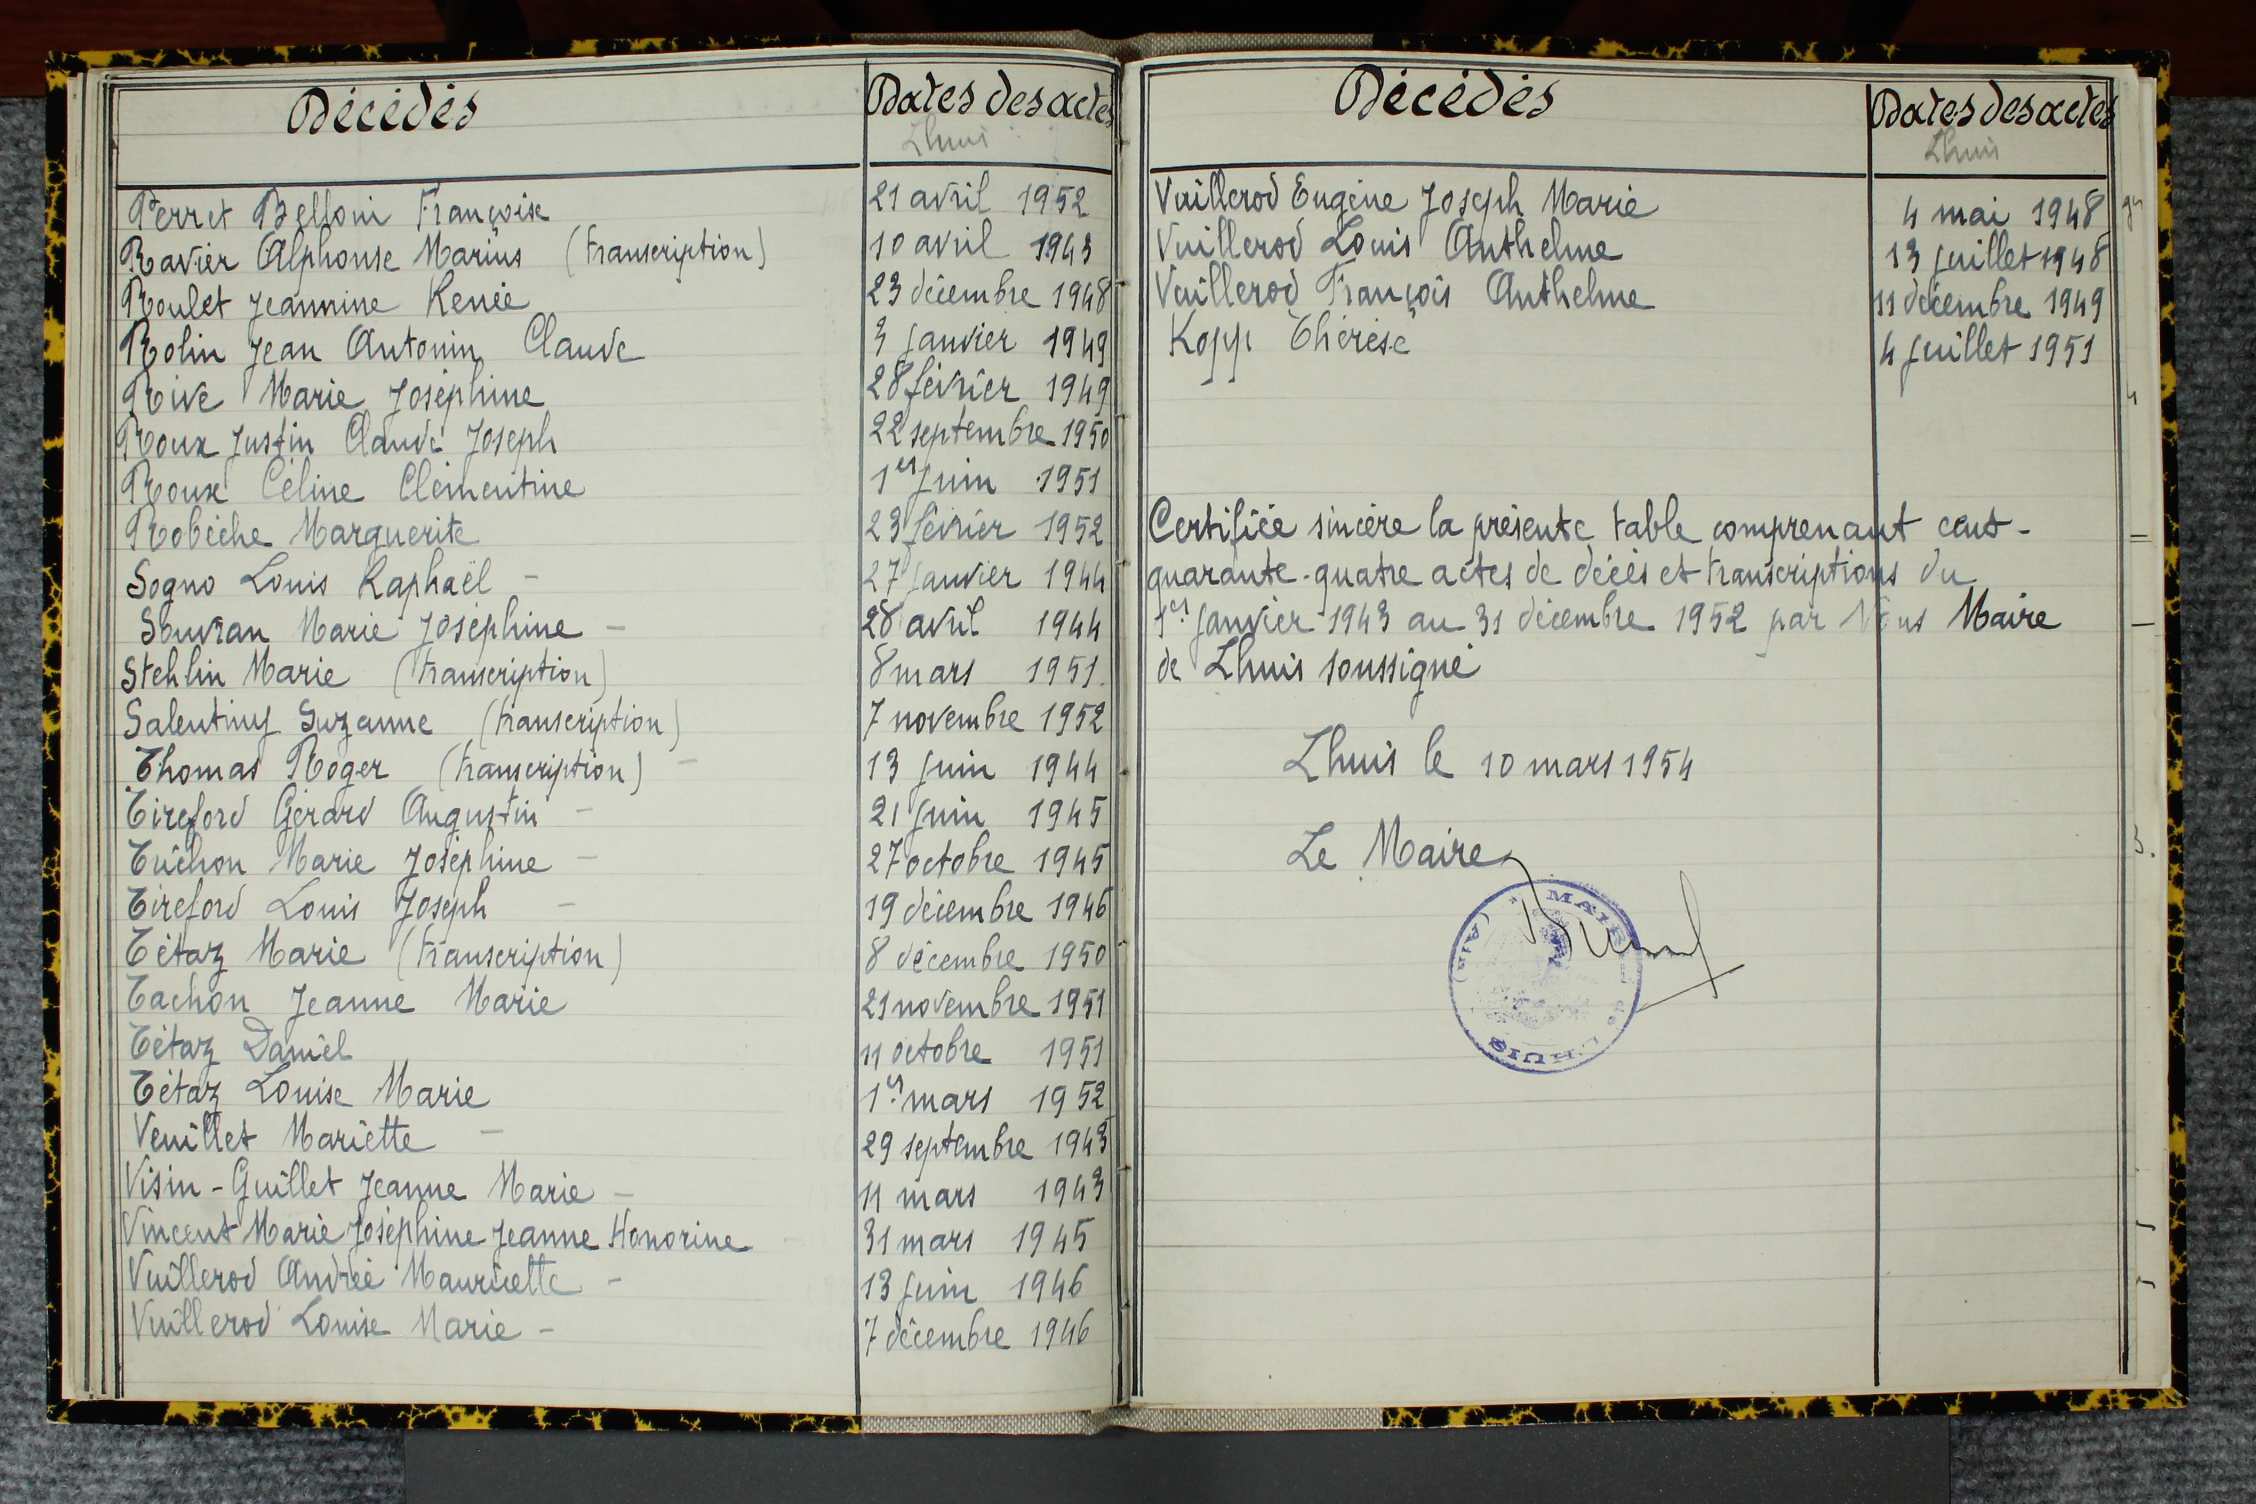 Décédés
Dates des actes
Lhuis
Perret Belloni Françoise 21 avril 1952
Ravier Alphonse Marius (transcription) 10 avril 1943
Roulet Jeannine Renée 23 décembre 1948
Rolin Jean Antonin Claude 3 janvier 1949
Rive Marie Joséphine 28 février 1949
Roux Justin Claude Joseph 22 septembre 1950
Roux Céline Clémentine 1er juin 1951
Robèche Marguerite 23 février 1952
Sogno Louis Raphaël - 27 janvier 1944
Souvran Marie Joséphine - 28 avril 1944
Stehlin Marie (transcription) 8 mars 1951
Salentiny Suzanne (transcription) 7 novembre 1952
Thomas Roger (transcription) - 13 juin 1944
Tireford Gérard Augustin - 21 juin 1945
Tûchon Marie Joséphine - 27 octobre 1945
Tireford Louis Joseph - 19 décembre 1946
Tétaz Marie (transcription) 8 décembre 1950
Tachon Jeanne Marie 21 novembre 1951
Tétaz Daniel 11 octobre 1951
Tétaz Louise Marie 1er mars 1952
Veuillet Mariette - 29 septembre 1943
Visin-Guillet Jeanne Marie - 11 mars 1943
Vincent Marie Joséphine Jeanne Honorine 31 mars 1945
Vuillerod Andrée Mauricette - 13 juin 1946
Vuillerod Louise Marie - 7 décembre 1946
Décédés
Dates des actes
Lhuis
Vuillerod Eugène Joseph Marie 4 mai 1948
Vuillerod Louis Anthelme 13 juillet 1948
Vuillerod François Anthelme 11 décembre 1949
Kopp Thérèse 4 juillet 1951
Certifiée sincère la présente table comprenant cent-
quarante-quatre actes de décès et transcriptions du
1er janvier 1943 au 31 décembre 1952 par Nous Maire
de Lhuis soussigné
Lhuis le 10 mars 1954
Le Maire
MAIRIE de LHUIS (AIN)